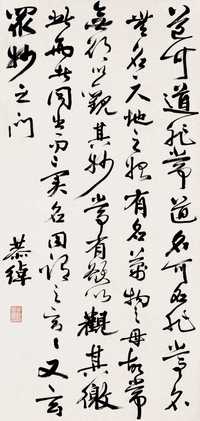 道可道非常道名可名非常名
無名天地之始有名萬物之母故常
無欲以觀其妙常有欲以觀其徼
此兩者同出而異名同謂之玄々之又玄
眾妙之门
恭綽